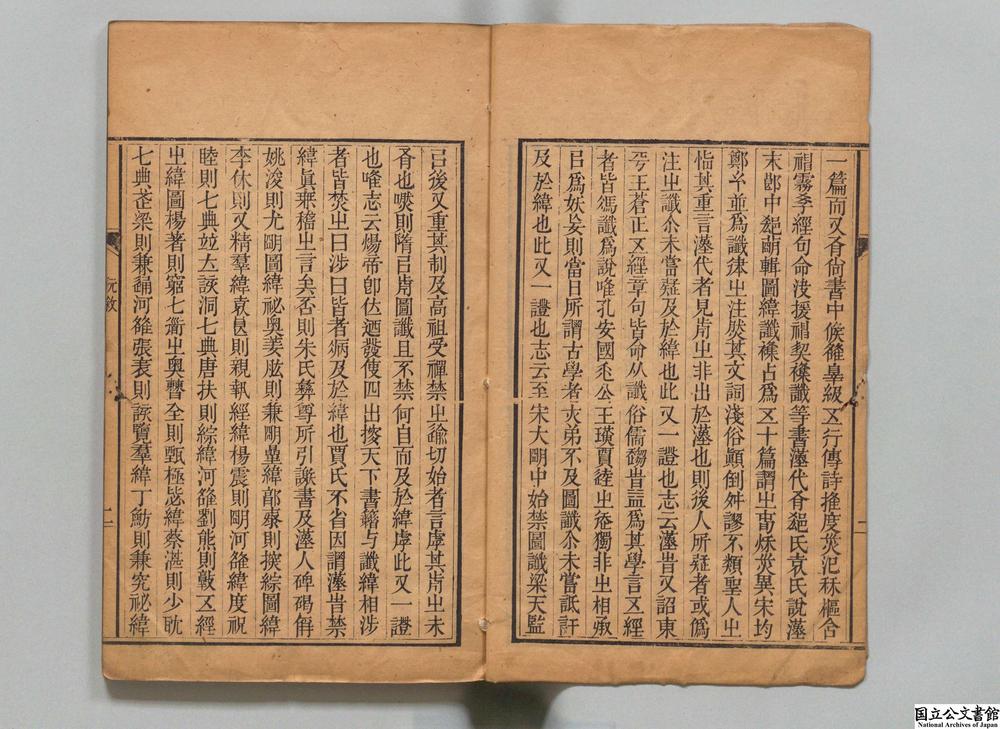 一篇而又有尙書中候雒皋級五行傳詩推度災氾秝樞含
神霧孝經句命決援神契襍讖等書漢代有郗氏袁氏說漢
末郎中郗萌輯圖緯讖襍占爲五十篇謂之旾秌災異宋均
鄭玄並爲讖律之注然其文詞淺俗顚倒舛謬不類聖人之
恉其重言漢代者見歬之非出於漢也則後人所疑者或僞
注之讖介未嘗疑及於緯也此又一證也志云漢旹又詔東
平王蒼正五經章句皆命从讖俗儒趨旹益爲其學言五經
者皆馮讖爲說唯孔安國毛公王璜賈逵之徒獨非之相承
㠯爲妖妄則當日所謂古學者大弟不及圖讖介未嘗詆訐
及於緯也此又一證也志云至宋大明中始禁圖讖梁天監
㠯後又重其制及高祖受禪禁之踰切始者言虖其歬之未
有也嘫則隋㠯歬圖讖且不禁何自而及於緯虖此又一證
也唯志云煬帝卽位迺發使四出搜天下書籍与讖緯相涉
者皆焚之曰涉曰皆者病及於緯也賈氏不省因謂漢旹禁
緯眞無稽之言矣否則朱氏彝尊所引讖書及漢人碑碣僻
姚浚則尤明圖緯祕奧姜肱則兼明星緯郙泰則探綜圖緯
李休則又精羣緯袁良則親執經緯楊震則明河雒緯度祝
睦則七典竝立該洞七典唐扶則綜緯河雒劉熊則敦五經
之緯圖楊著則窮七衟之奧瞀全則甄極毖緯蔡湛則少耽
七典武梁則兼通河雒張表則該覽羣緯丁魴則兼究祕緯
阮敘
二